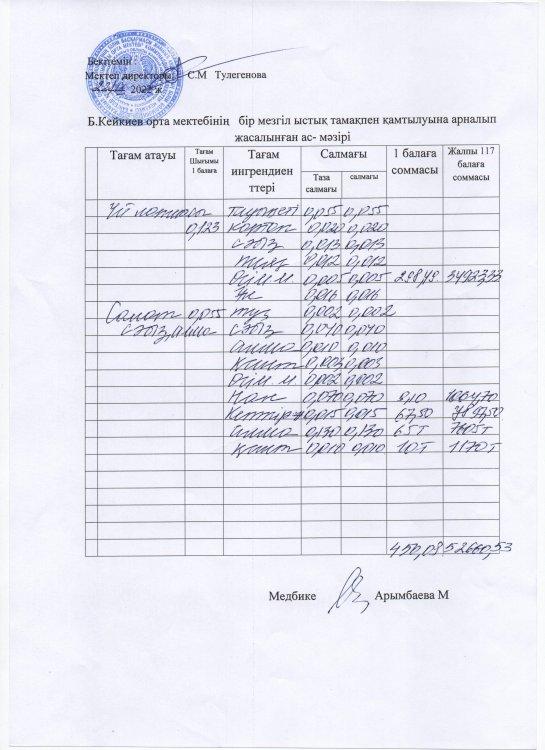 Бекітемін
Мектеп директоры С.М Тулегенова
2022 ж.
Б.Кейкиев орта мектебінің бір мезгіл ыстық тамақпен қамтылуына арналып
жасалынған ас- мәзірі
Тағам атауы Тағам Шығымы 1 балаға Тағам ингрендиен ттері Салмағы 1 балаға соммасы Жалпы 117 балаға соммасы
Таза салмағы салмағы
0,055 0,055
0,123 картоп 0,020 0,020
сәбіз 0,013 0,013
пияз 0,012 0,012
өсім м 0,005 0,005 298,49
ет 0,016 0,016
Салат 0,055 тұз 0,002 0,002
сәбіз, алма сәбіз 0,040 0,040
алма 0,010 0,010
қант 0,003 0,003
өсім м 0,002 0,002
нан 0,070 0,070 9,10 1064,70
0,015 0,015 67,50 7897,50
алма 0,130 0,130 65т 7605т
қант 0,010 0,010 10т 1170т
450,09 52660,53
Медбике Арымбаева М